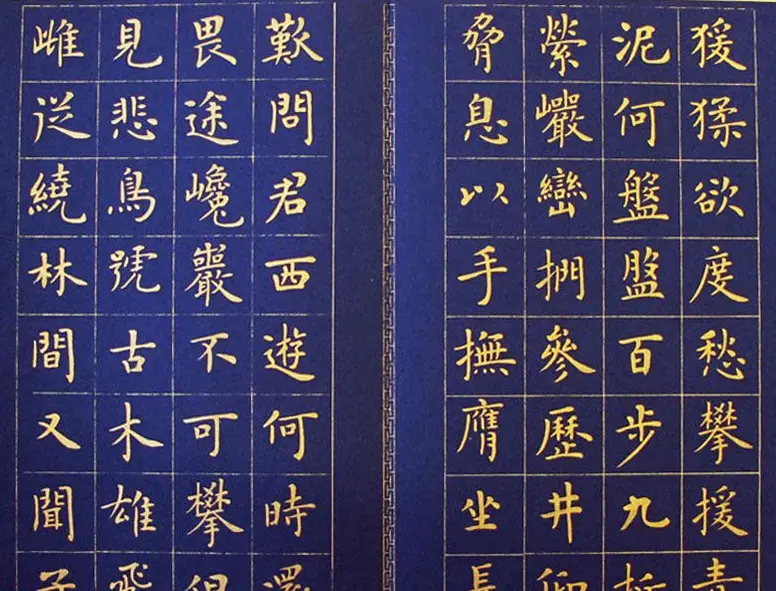 猨猱欲度愁攀援青
泥何盤盤百步九折
縈巖巒捫參歷井仰
脅息以手撫膺坐長
歎問君西遊何時還
畏途巉巖不可攀但
見悲鳥號古木雄飛
雌從繞林間又聞子